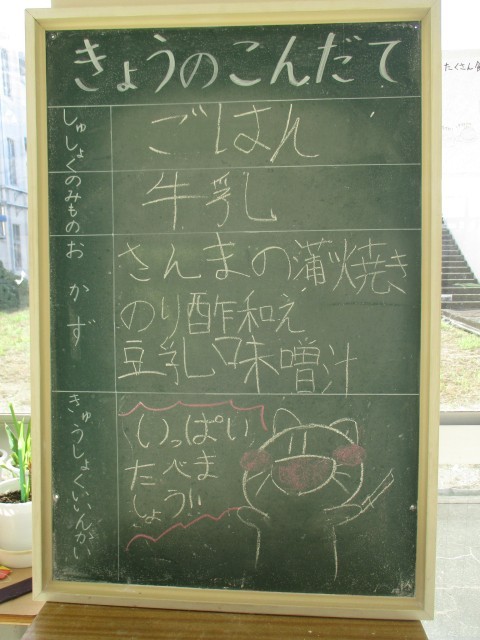 きょうのこんだて
しゅしょく
ごはん
のみもの
牛乳
おかず
さんまの蒲焼き
のり酢和え
豆乳味噌汁
きゅうしょくいいんかい
いっぱい
たべま
しょう!!
たくさん